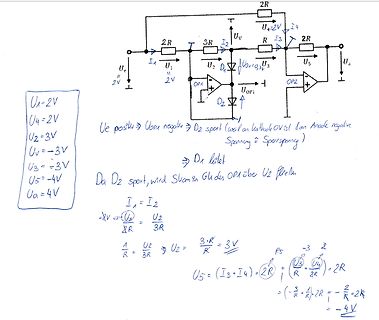 2R
U4=2V
I4
2R
3R
I2
UV
R
I3
2R
Ue
2V
I1
U1
2V
U2
D1
U3
U5
Ua
OP1
D2
UOP1
OP2
U1=2V
U4=2V
U2=3V
UV=-3V
U3=-3V
U5=-4V
Ua=4V
Ue positiv ⇒ UOP1 negativ ⇒ D2 sperrt (weil an Kathode 0V ist & an Anode negative
Spannung = Sperrspannung)
⇒ D1 leitet
Da D2 sperrt, wird Strom im GK des OP1 über U2 fließen
I1 = I2
U1/2R = U2/3R
1/R = U2/3R ⇒ U2 = 3·R/R = 3V
-3 2
U5 = (I3 + I4) · 2R = (U3/R + U4/2R) · 2R
= (-3/R + 1/R) · 2R = -2/R · 2R
= -4V